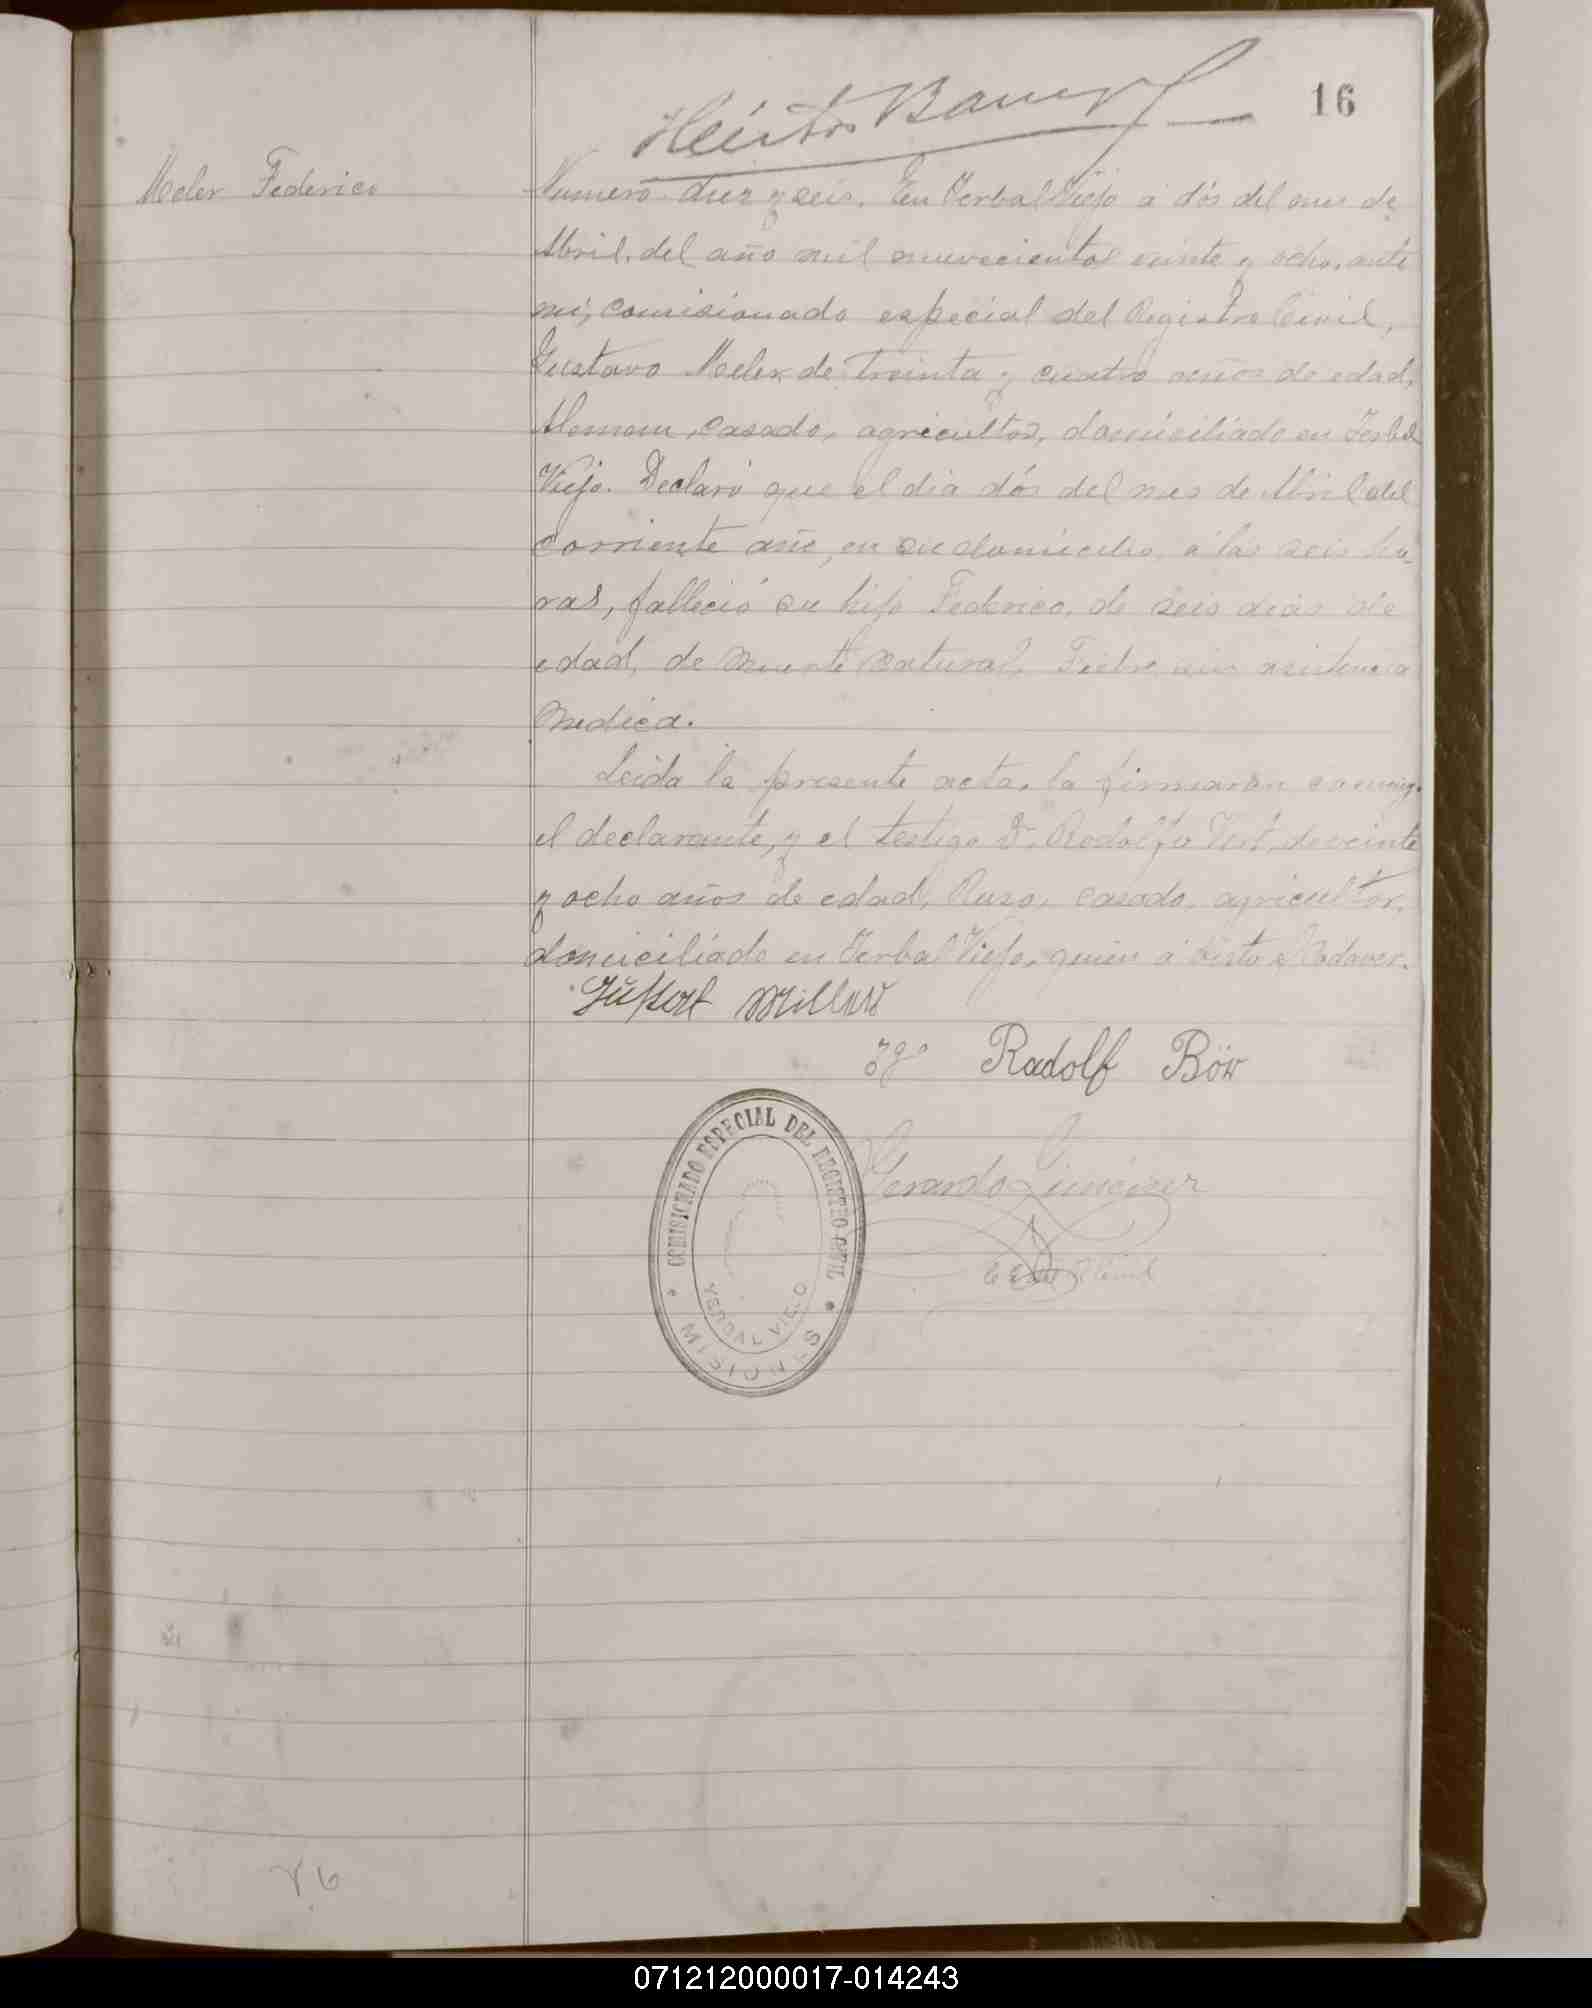 16
Meler Federico
Numero diez y seis. En Yerbal Viejo a dós del mes de
Abril, del año mil nuevecientos veinte y ocho, ante
mi, comisionado especial del Registro Civil,
Gustavo Meler de treinta y cuatro años de edad,
Aleman, casado, agricultor, domiciliado en Yerbal
Viejo. Declaró que el dia dós del mes de Abril del
corriente año, en su domicilio, á las seis ho-
ras, falleció su hijo Federico, de seis dias de
edad, de muerte natural, Fiebre sin asistencia
medica.
Leida la presente acta, la firmaron conmigo
el declarante, y el testigo Dn. Rodolfo de veinte
y ocho años de edad, Ruso, casado, agricultor,
domiciliado en Yerbal Viejo, quien á visto el Cadaver.
Gustav Miller
tgo Radolf Bör
Gerardo Giménez
COMISIONADO ESPECIAL DEL REGISTRO CIVIL
YERBAL VIEJO
MISIONES
071212000017-014243